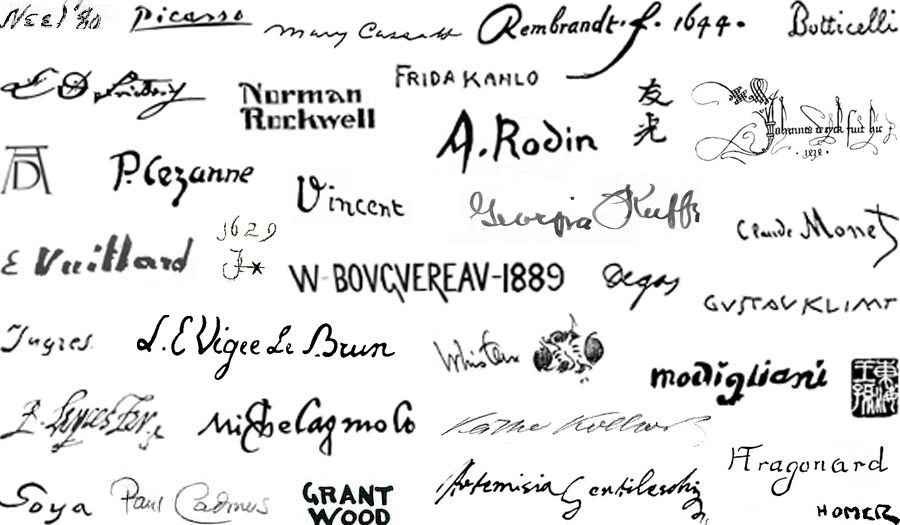 Neel '80
Picasso
Mary Cassatt
Rembrandt. f. 1644.
Botticelli
Norman
Rockwell
FRIDA KAHLO
A. Rodin
友
光
Johannes de eyck fuit hic
.1434.
AD
P. Cezanne
Vincent
Georgia O'Keeffe
Claude Monet
E Vuillard
1629
J
W-BOVGVEREAV-1889
Degas
GUSTAV KLIMT
Ingres.
L. E Vigee Le Brun
Whistler
modigliani
Michelagniolo
Kathe Kollwitz
Fragonard
Goya
Paul Cadmus
GRANT
WOOD
Artemisia Gentileschi
HOMER